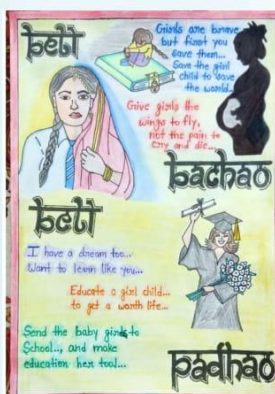 beti
Girls are brave
but first you
save them...
Save the girl
child to save
the world..
Give girls the
wings to fly,
not the pain to
cry and die...
bachao
beti
I have a dream too...
Want to learn like you...
Educate a girl child...
to get a worth life...
Send the baby girls to
School.., and make
education her tool...
padhao